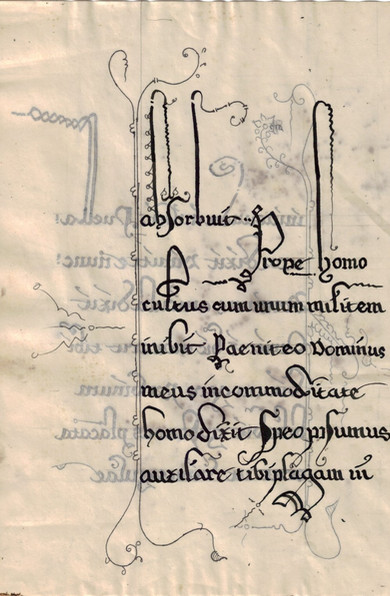 absorbuit
Prope homo
cultus cum unum militem
inibit Paeniteo Dominus
meus incommoditate
homo dixit Speo
auxiliare tibi plagam